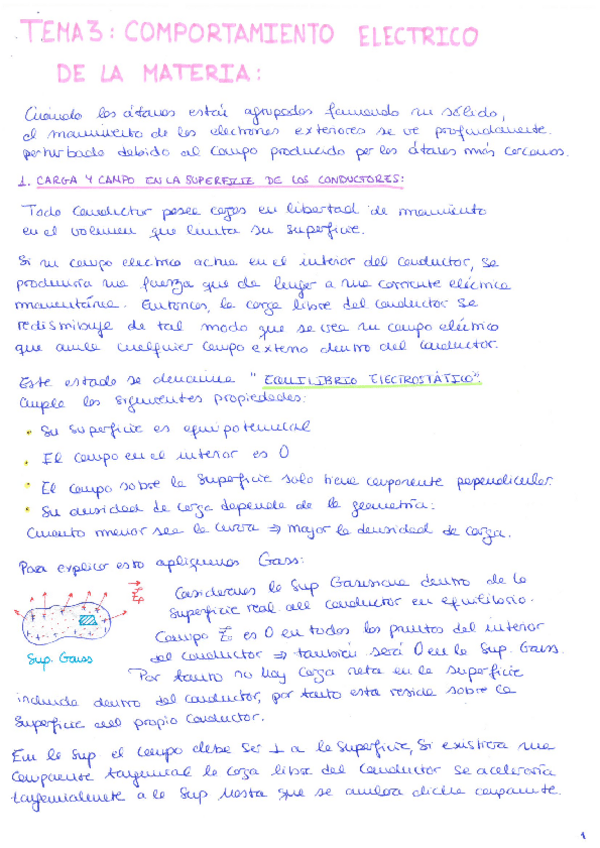 TEMA 3: COMPORTAMIENTO ELECTRICO
DE LA MATERIA:
Cuando los átomos están agrupados formando un sólido,
el movimiento de los electrones exteriores se ve profundamente
perturbado debido al campo producido por los átomos más cercanos.
1. CARGA Y CAMPO EN LA SUPERFICIE DE LOS CONDUCTORES:
Todo conductor posee cargas en libertad de movimiento
en el volumen que limita su superficie.
Si un campo electrico actua en el interior del conductor, se
produciria una fuerza que da lugar a una corriente eléctrica
momentánea. Entonces, la carga libre del conductor se
redistribuye de tal modo que se crea un campo eléctrico
que anula cualquier campo externo dentro del conductor.
Este estado se denomina "EQUILIBRIO ELECTROSTÁTICO".
Cumple las siguientes propiedades:
• Su superficie es equipotencial
• El campo en el interior es 0
• El campo sobre la superficie solo tiene componente perpendicular
• Su densidad de carga depende de la geometría:
Cuanto menor sea la curva ⇒ mayor la densidad de carga.
Para explicar esto apliquemos Gauss:
Consideremos la Sup Gaussiana dentro de la
superficie real del conductor en equilibrio.
Campo E⃗ es 0 en todos los puntos del interior
del conductor ⇒ también será 0 en la Sup. Gauss.
Sup. Gauss
Por tanto no hay carga neta en la superficie
incluida dentro del conductor, por tanto esta reside sobre la
superficie del propio conductor.
En la sup el campo debe ser ⊥ a la superficie, si existiera una
componente tangencial la carga libre del conductor se aceleraría
tangencialmente a la sup hasta que se anulara dicha componente.
1